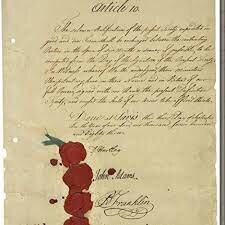 Article 10.
The solemn Ratifications of the present Treaty expedited in
good and due Form shall be exchanged between the contracting
Parties in the Space of Six Months or sooner, if possible, to be
computed from the Day of the Signature of the present Treaty.
In Witness whereof We the undersigned their Ministers
Plenipotentiary have in their Name and in Virtue of our
Full Powers signed with our Hands the present Definitive
Treaty, and the Seals of our Arms to be affix'd thereto.
Done at Paris this third Day of September,
In the Year of our Lord one thousand seven hundred
and Eighty three.
D Hartley
John Adams.
B Franklin